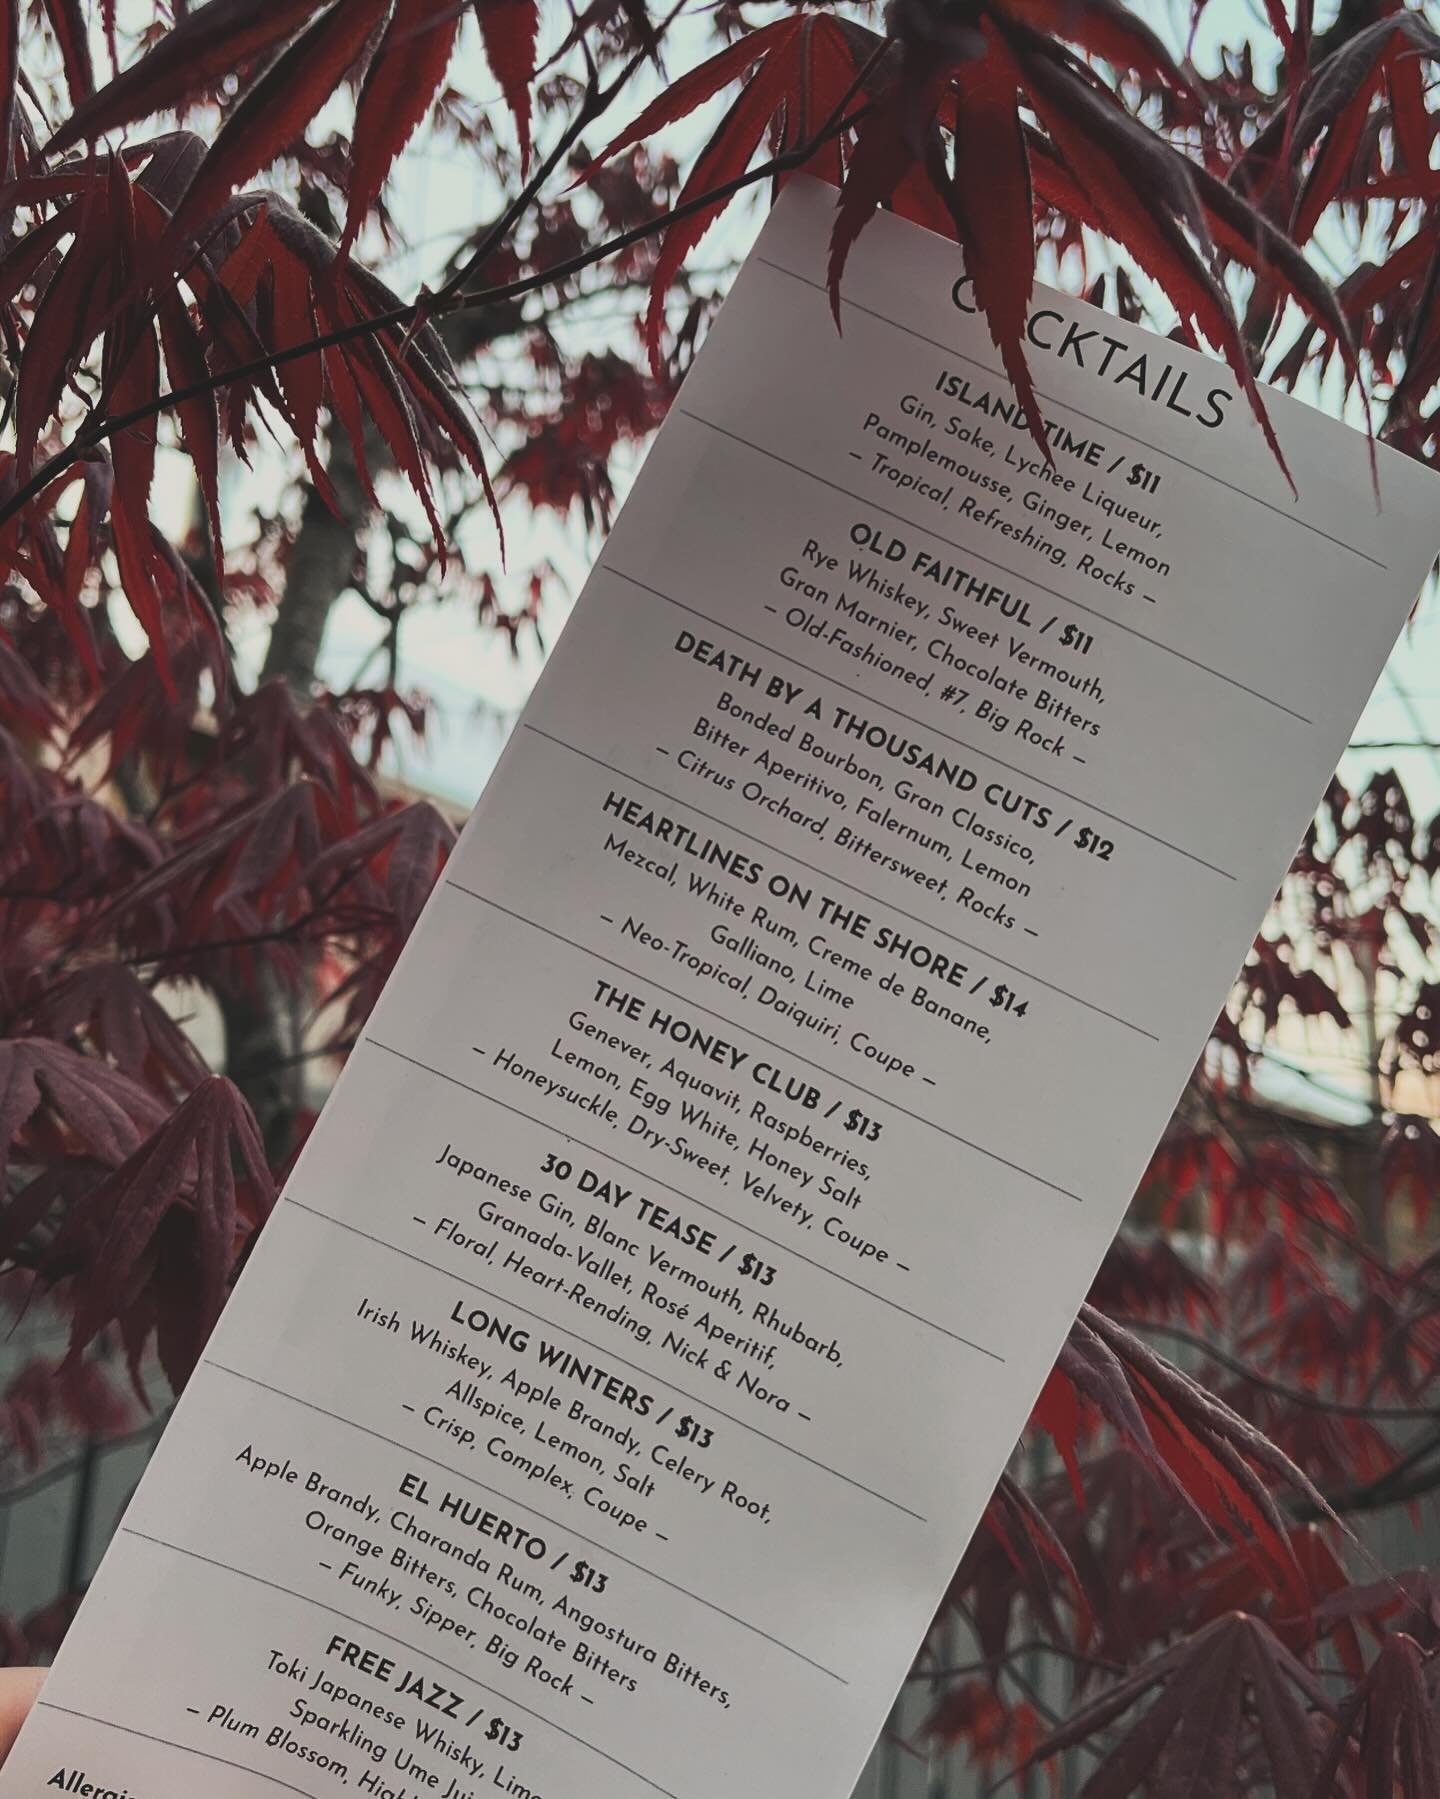 COCKTAILS
ISLAND TIME / $11
Gin, Sake, Lychee Liqueur,
Pamplemousse, Ginger, Lemon
– Tropical, Refreshing, Rocks –
OLD FAITHFUL / $11
Rye Whiskey, Sweet Vermouth,
Gran Marnier, Chocolate Bitters
– Old-Fashioned, #7, Big Rock –
DEATH BY A THOUSAND CUTS / $12
Bonded Bourbon, Gran Classico,
Bitter Aperitivo, Falernum, Lemon
– Citrus Orchard, Bittersweet, Rocks –
HEARTLINES ON THE SHORE / $14
Mezcal, White Rum, Creme de Banane,
Galliano, Lime
– Neo-Tropical, Daiquiri, Coupe –
THE HONEY CLUB / $13
Genever, Aquavit, Raspberries,
Lemon, Egg White, Honey Salt
– Honeysuckle, Dry-Sweet, Velvety, Coupe –
30 DAY TEASE / $13
Japanese Gin, Blanc Vermouth, Rhubarb,
Granada-Vallet, Rosé Aperitif,
– Floral, Heart-Rending, Nick & Nora –
LONG WINTERS / $13
Irish Whiskey, Apple Brandy, Celery Root,
Allspice, Lemon, Salt
– Crisp, Complex, Coupe –
EL HUERTO / $13
Apple Brandy, Charanda Rum, Angostura Bitters,
Orange Bitters, Chocolate Bitters
– Funky, Sipper, Big Rock –
FREE JAZZ / $13
Toki Japanese Whisky, Lime
Sparkling Ume
– Plum Blossom,